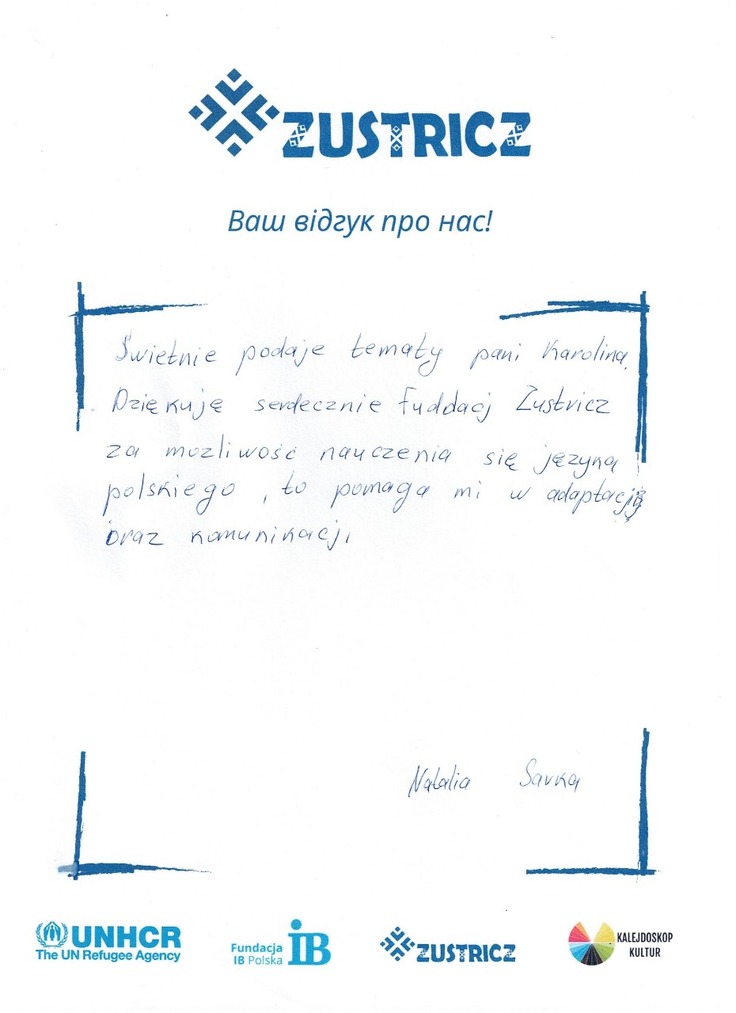 ZUSTRICZ
Ваш відгук про нас!
Świetnie podaje tematy pani Karolina.
Dziękuję serdecznie Fuddacj Zustricz
za mozliwość nauczenia się języka
polskiego, to pomaga mi w adaptacji
oraz komunikacji
Natalia Savka
UNHCR
The UN Refugee Agency
Fundacja
IB Polska
iB
ZUSTRICZ
KALEJDOSKOP
KULTUR